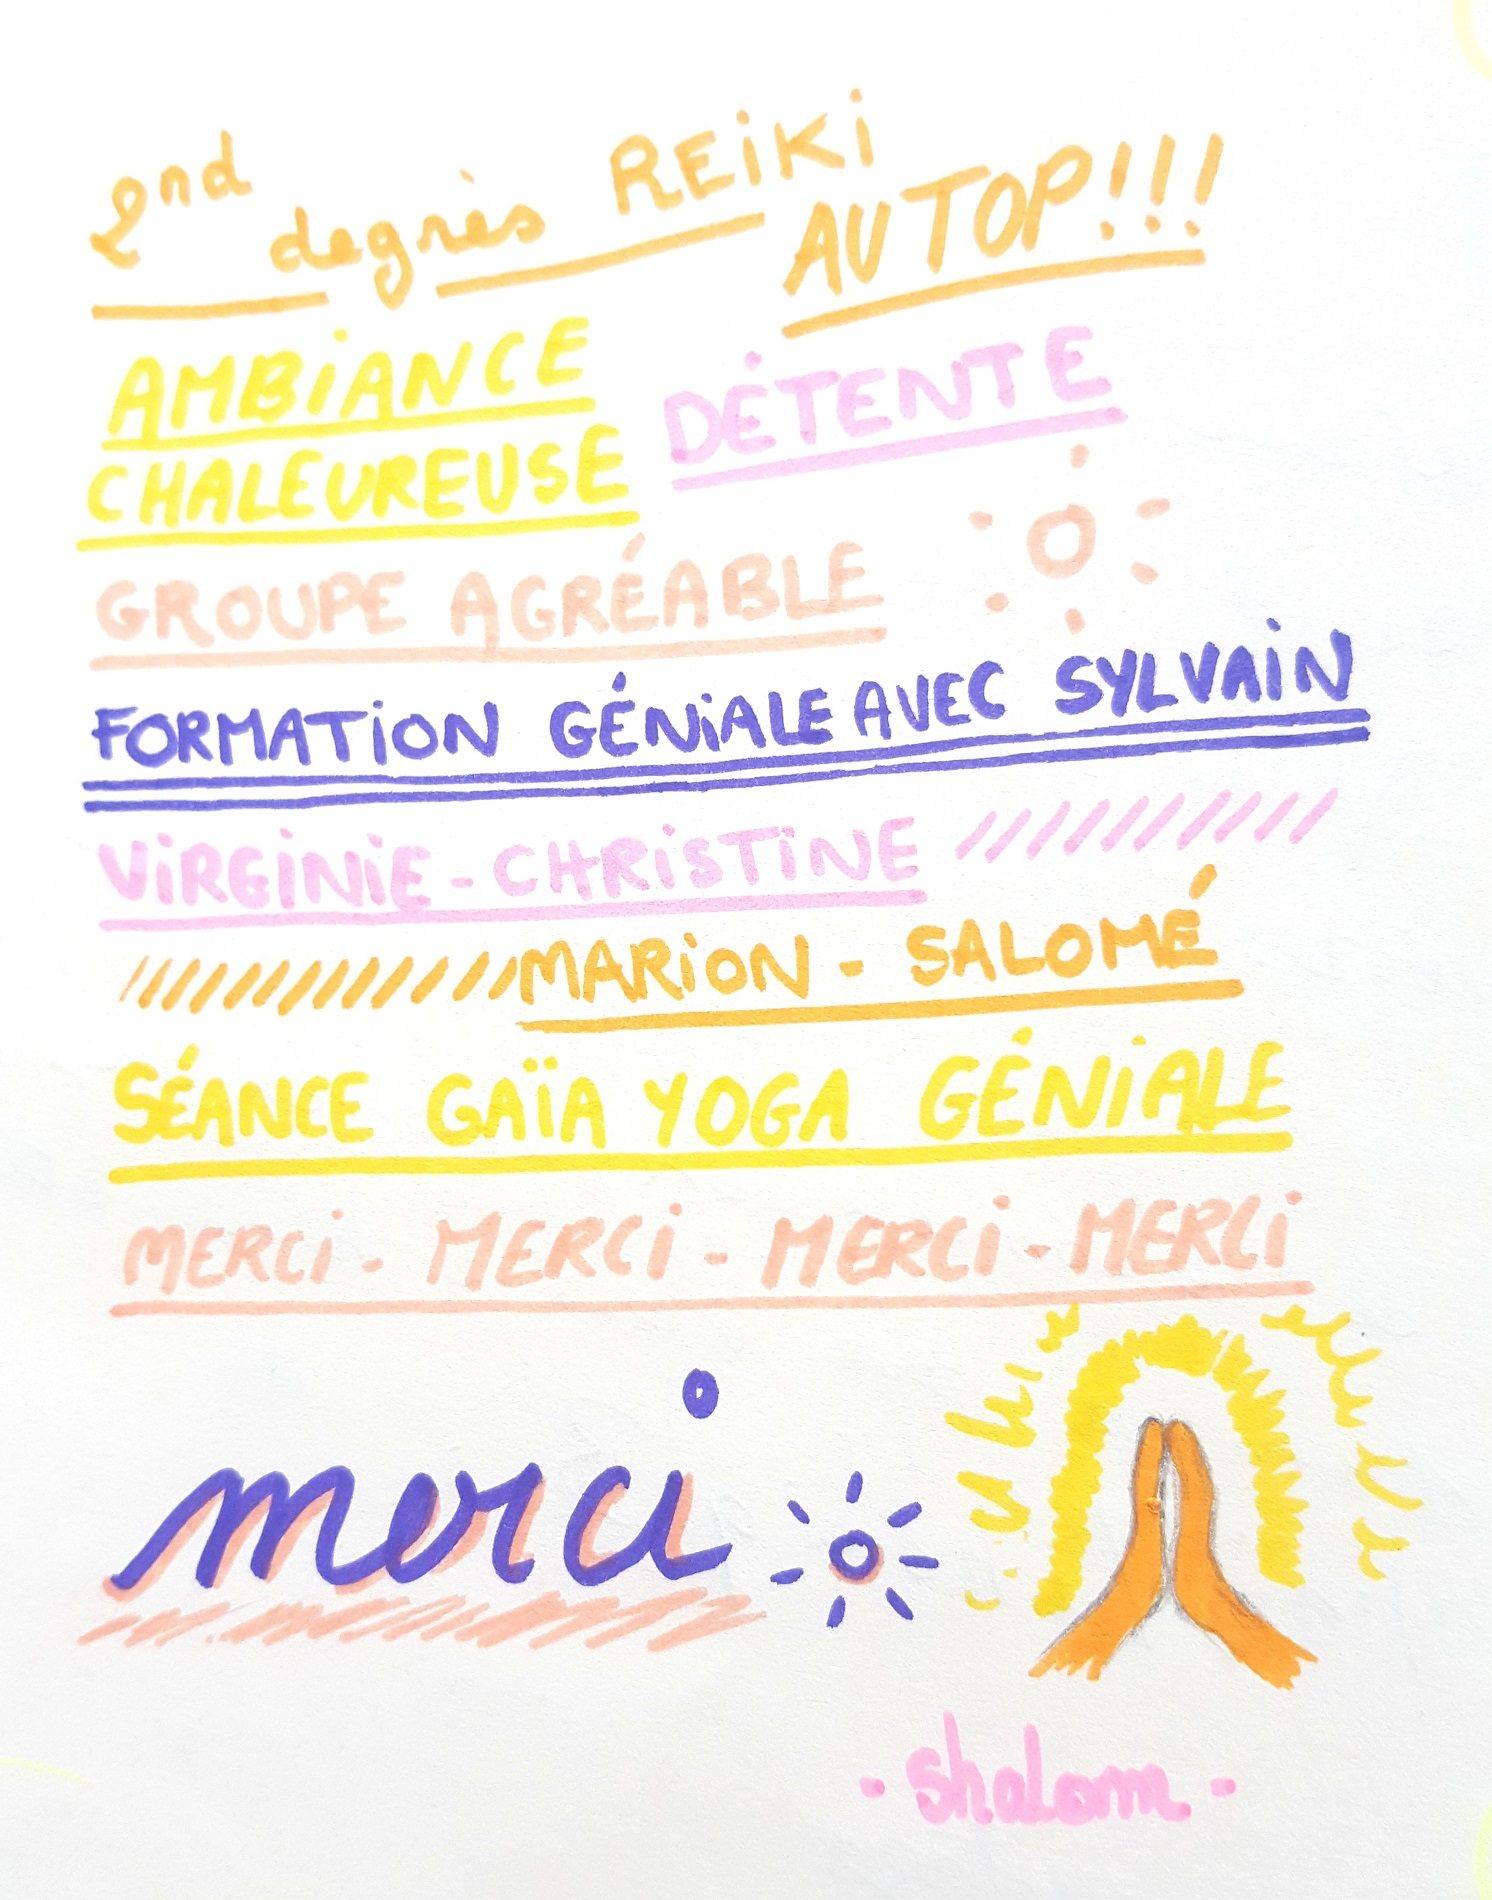 2nd degrès REiKi
AU TOP!!!
AMBiANCE
CHALEUREUSE
DÉTENTE
GROUPE AGRÉABLE
FORMATiON GÉNiALE AVEC SYLVAiN
ViRGiNiE - CHRiSTiNE
MARiON - SALOMÉ
SÉANCE GAÏA YOGA GÉNiALE
MERCi - MERCi - MERCi - MERCi
merci
- shalom -